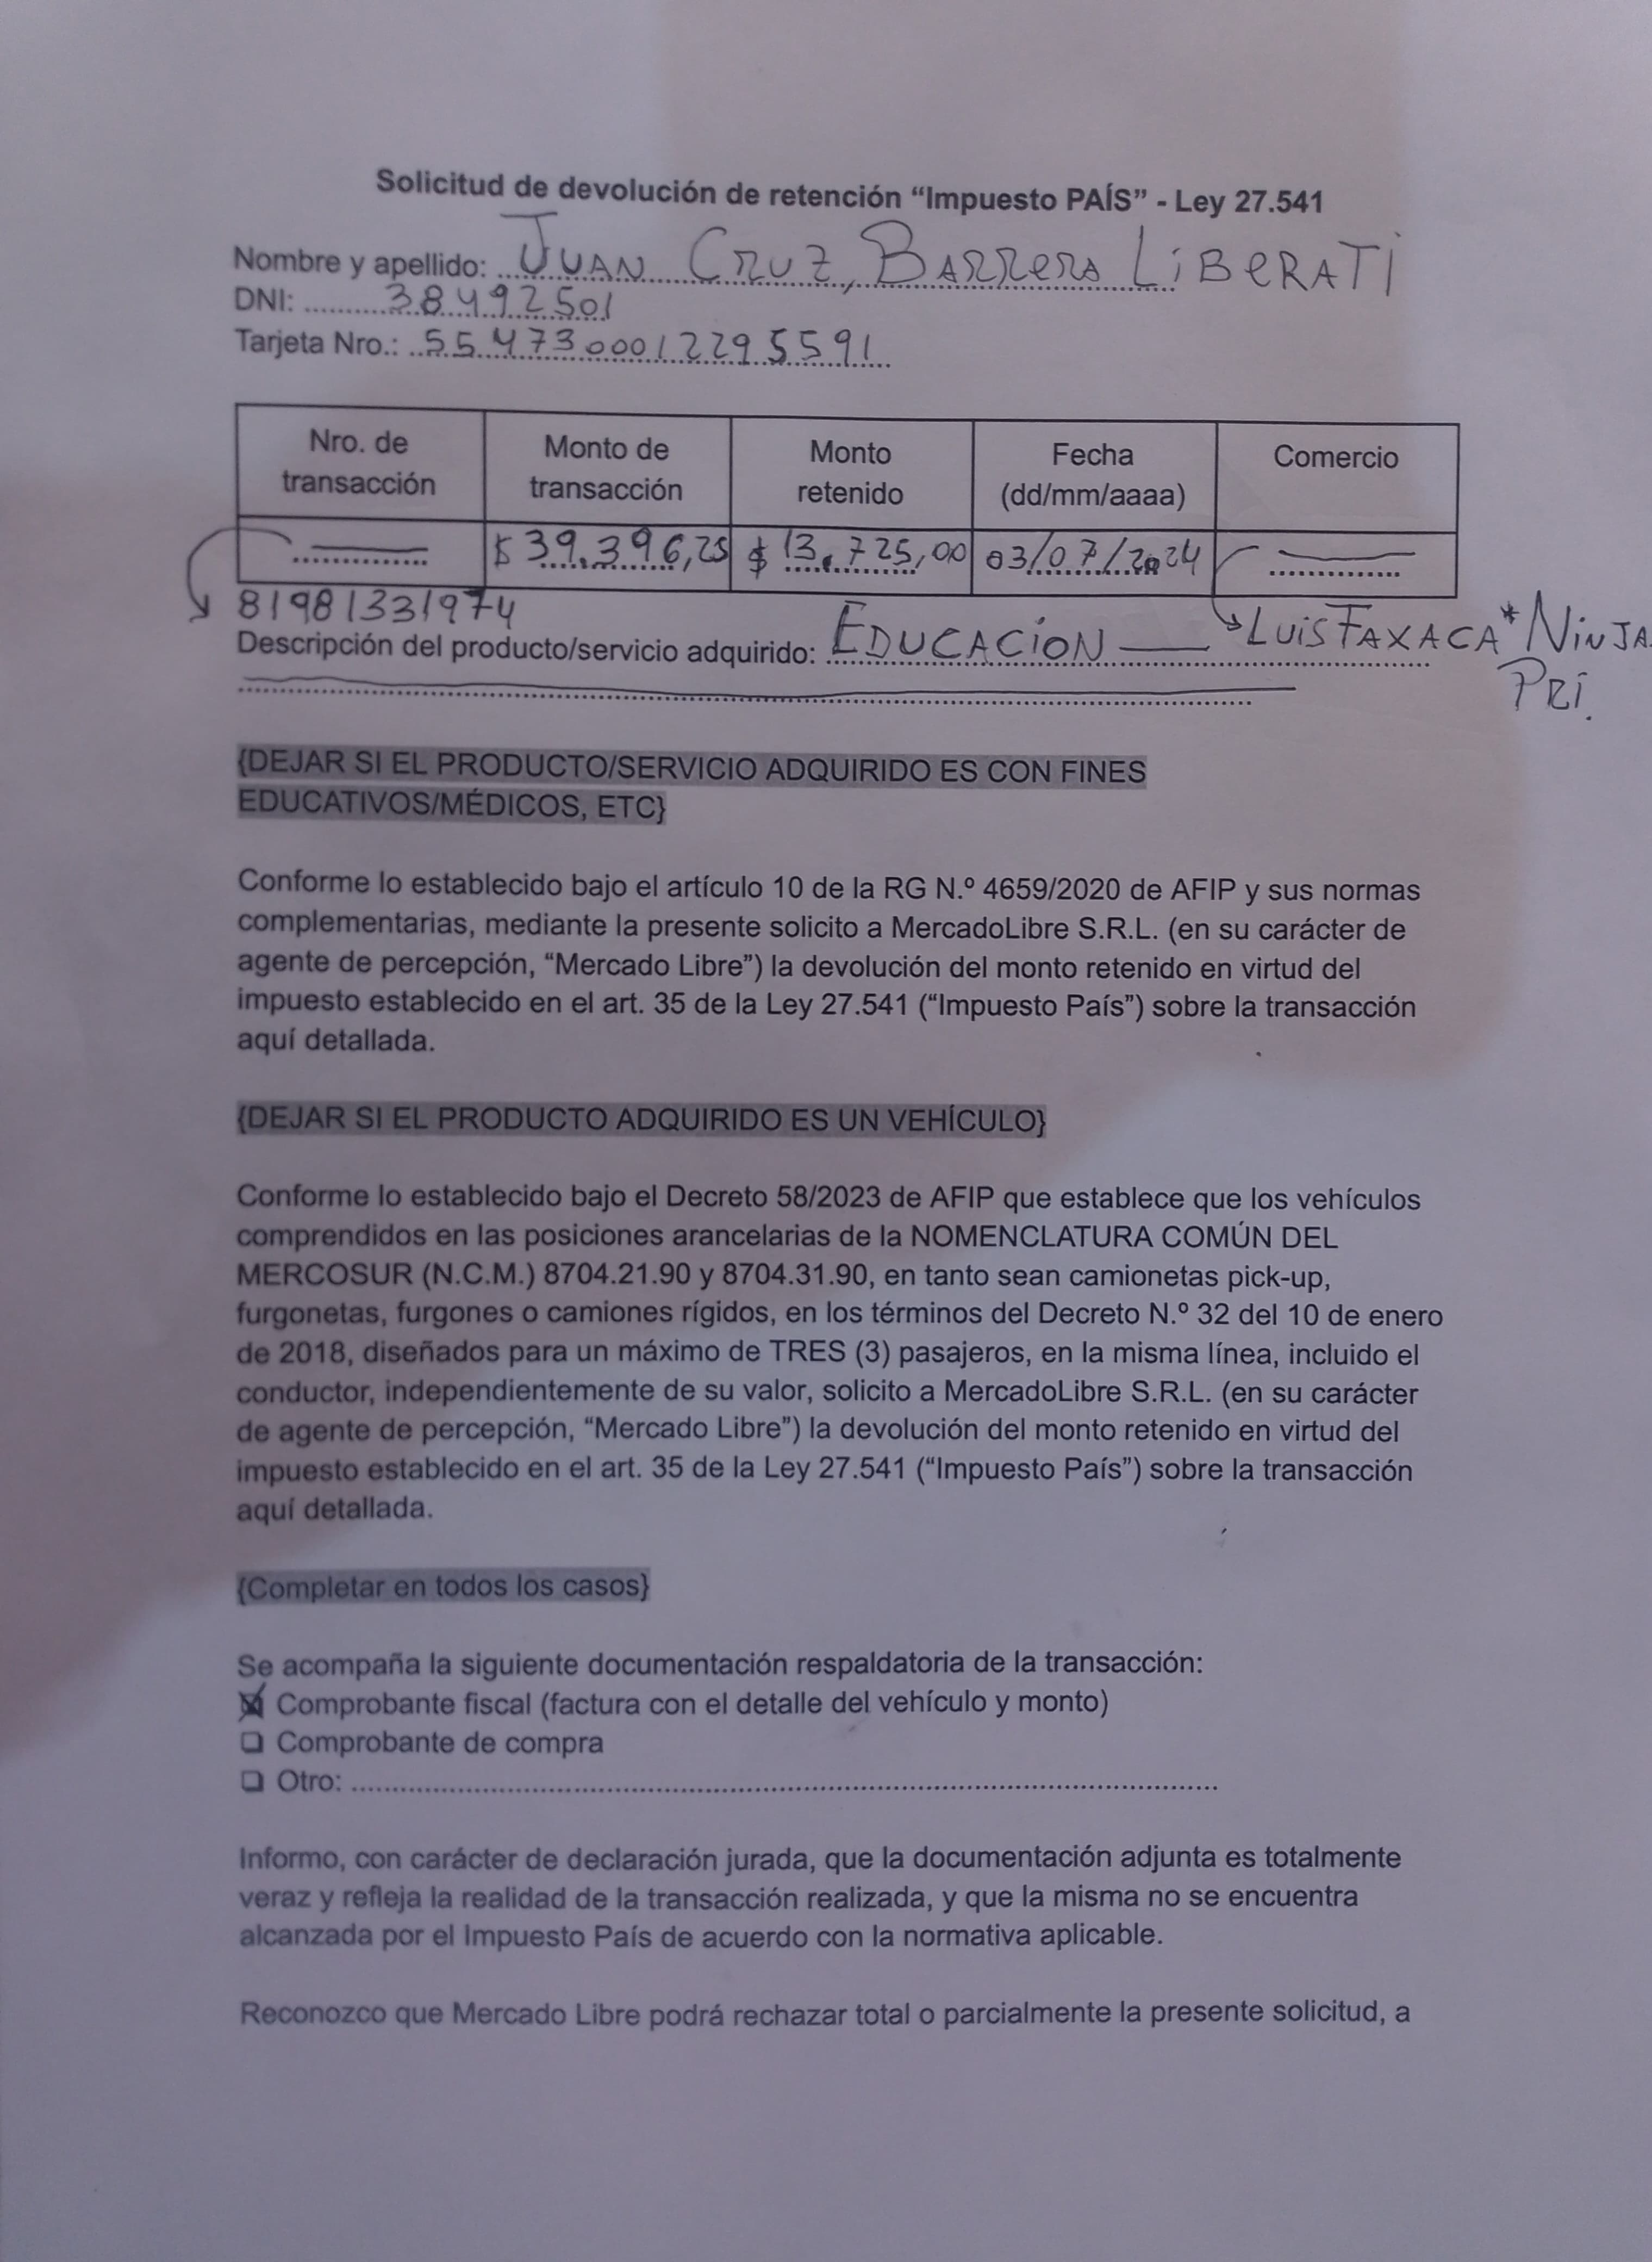 Solicitud de devolución de retención “Impuesto PAÍS” - Ley 27.541
Nombre y apellido: JUAN CRUZ, BARRERA LIBERATI
DNI: 38492501
Tarjeta Nro.: 5547300012295591
Nro. de transacción
Monto de transacción
Monto retenido
Fecha (dd/mm/aaaa)
Comercio
$39.396,25 $13.725,00 03/07/2024
81981331974
Descripción del producto/servicio adquirido: EDUCACION
LUISTAXACA*NINJA
PRI.
{DEJAR SI EL PRODUCTO/SERVICIO ADQUIRIDO ES CON FINES
EDUCATIVOS/MÉDICOS, ETC}
Conforme lo establecido bajo el artículo 10 de la RG N.º 4659/2020 de AFIP y sus normas
complementarias, mediante la presente solicito a MercadoLibre S.R.L. (en su carácter de
agente de percepción, “Mercado Libre”) la devolución del monto retenido en virtud del
impuesto establecido en el art. 35 de la Ley 27.541 (“Impuesto País”) sobre la transacción
aquí detallada.
{DEJAR SI EL PRODUCTO ADQUIRIDO ES UN VEHÍCULO}
Conforme lo establecido bajo el Decreto 58/2023 de AFIP que establece que los vehículos
comprendidos en las posiciones arancelarias de la NOMENCLATURA COMÚN DEL
MERCOSUR (N.C.M.) 8704.21.90 y 8704.31.90, en tanto sean camionetas pick-up,
furgonetas, furgones o camiones rígidos, en los términos del Decreto N.º 32 del 10 de enero
de 2018, diseñados para un máximo de TRES (3) pasajeros, en la misma línea, incluido el
conductor, independientemente de su valor, solicito a MercadoLibre S.R.L. (en su carácter
de agente de percepción, “Mercado Libre”) la devolución del monto retenido en virtud del
impuesto establecido en el art. 35 de la Ley 27.541 (“Impuesto País”) sobre la transacción
aquí detallada.
{Completar en todos los casos}
Se acompaña la siguiente documentación respaldatoria de la transacción:
Comprobante fiscal (factura con el detalle del vehículo y monto)
Comprobante de compra
Otro:
Informo, con carácter de declaración jurada, que la documentación adjunta es totalmente
veraz y refleja la realidad de la transacción realizada, y que la misma no se encuentra
alcanzada por el Impuesto País de acuerdo con la normativa aplicable.
Reconozco que Mercado Libre podrá rechazar total o parcialmente la presente solicitud, a